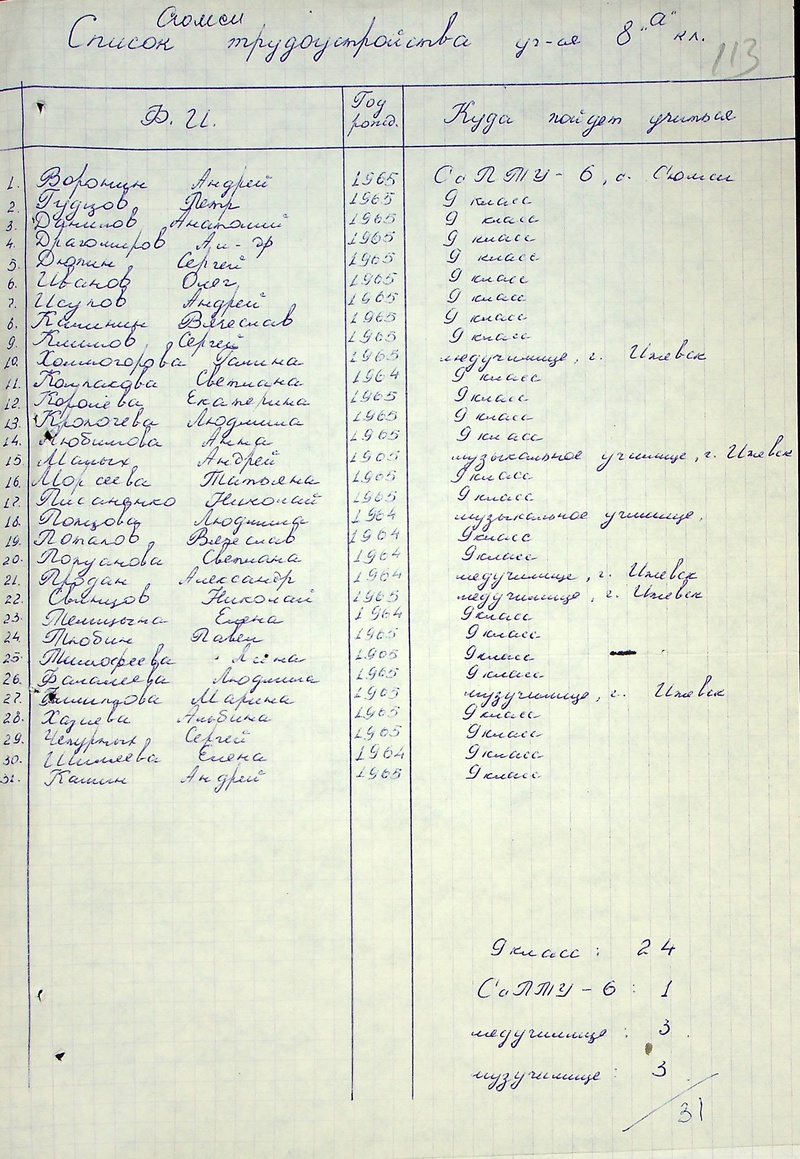 Сюмси
Список трудоустройства уч-ся 8 "а" кл.
113
Ф. И. Год рожд. Куда пойдет учиться
1. Воронин Андрей 1965 СпПТУ-6, с. Сюмси
2. Гудцов Петр 1965 9 класс
3. Данилов Анатолий 1965 9 класс
4. Драгомиров Ал-др 1965 9 класс
5. Дюпин Сергей 1965 9 класс
6. Иванов Олег 1965 9 класс
7. Исупов Андрей 1965 9 класс
8. Калинин Вячеслав 1965 9 класс
9. Климов Сергей 1965 9 класс
10. Холмогорова Галина 1965 медучилище, г. Ижевск
11. Колпакова Светлана 1964 9 класс
12. Королева Екатерина 1965 9 класс
13. Кропочева Людмила 1965 9 класс
14. Любимова Анна 1965 9 класс
15. Малых Андрей 1965 музыкальное училище, г. Ижевск
16. Морсеева Татьяна 1965 9 класс
17. Писаненко Николай 1965 9 класс
18. Попцова Людмила 1964 музыкальное училище,
19. Потапов Вячеслав 1964 9 класс
20. Полуанова Светлана 1964 9 класс
21. Продан Александр 1964 медучилище, г. Ижевск
22. Свинцов Николай 1965 медучилище, г. Ижевск
23. Телицына Елена 1964 9 класс
24. Тюбин Павел 1965 9 класс
25. Тимофеева 1965 9 класс
26. Фалалеева Людмила 1965 9 класс
27. Марина 1965 музучилище, г. Ижевск
28. Хазиева Альбина 1965 9 класс
29. Чепурных Сергей 1965 9 класс
30. Шиляева Елена 1964 9 класс
31. Кашин Андрей 1965 9 класс
9 класс: 24
СпПТУ-6: 1
медучилище: 3
музучилище: 3
31